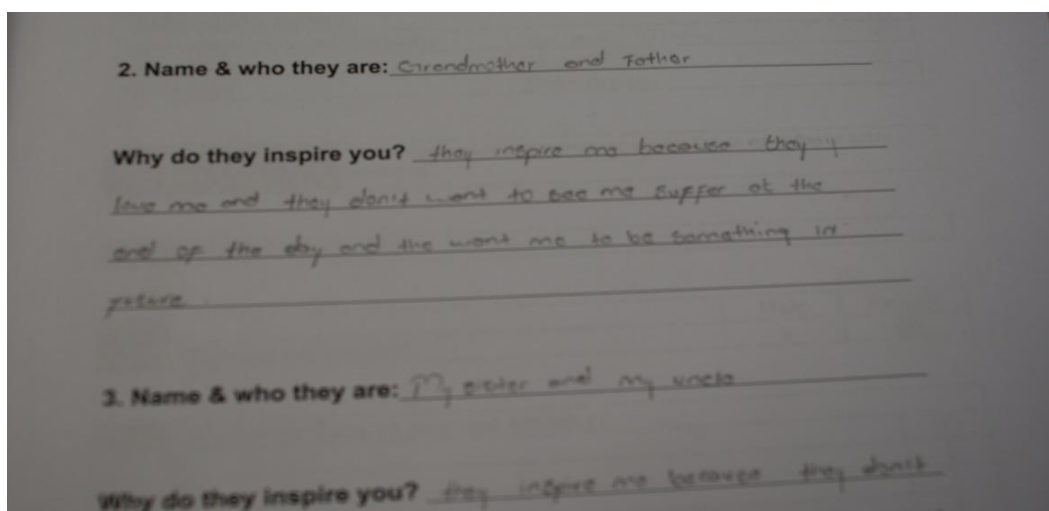 2. Name & who they are: Grandmother and Father
Why do they inspire you? they inspire me because they
love me and they don't want to see me suffer at the
end of the day and the want me to be something in
future
3. Name & who they are: My sister and my uncle
Why do they inspire you? they inspire me because they don't